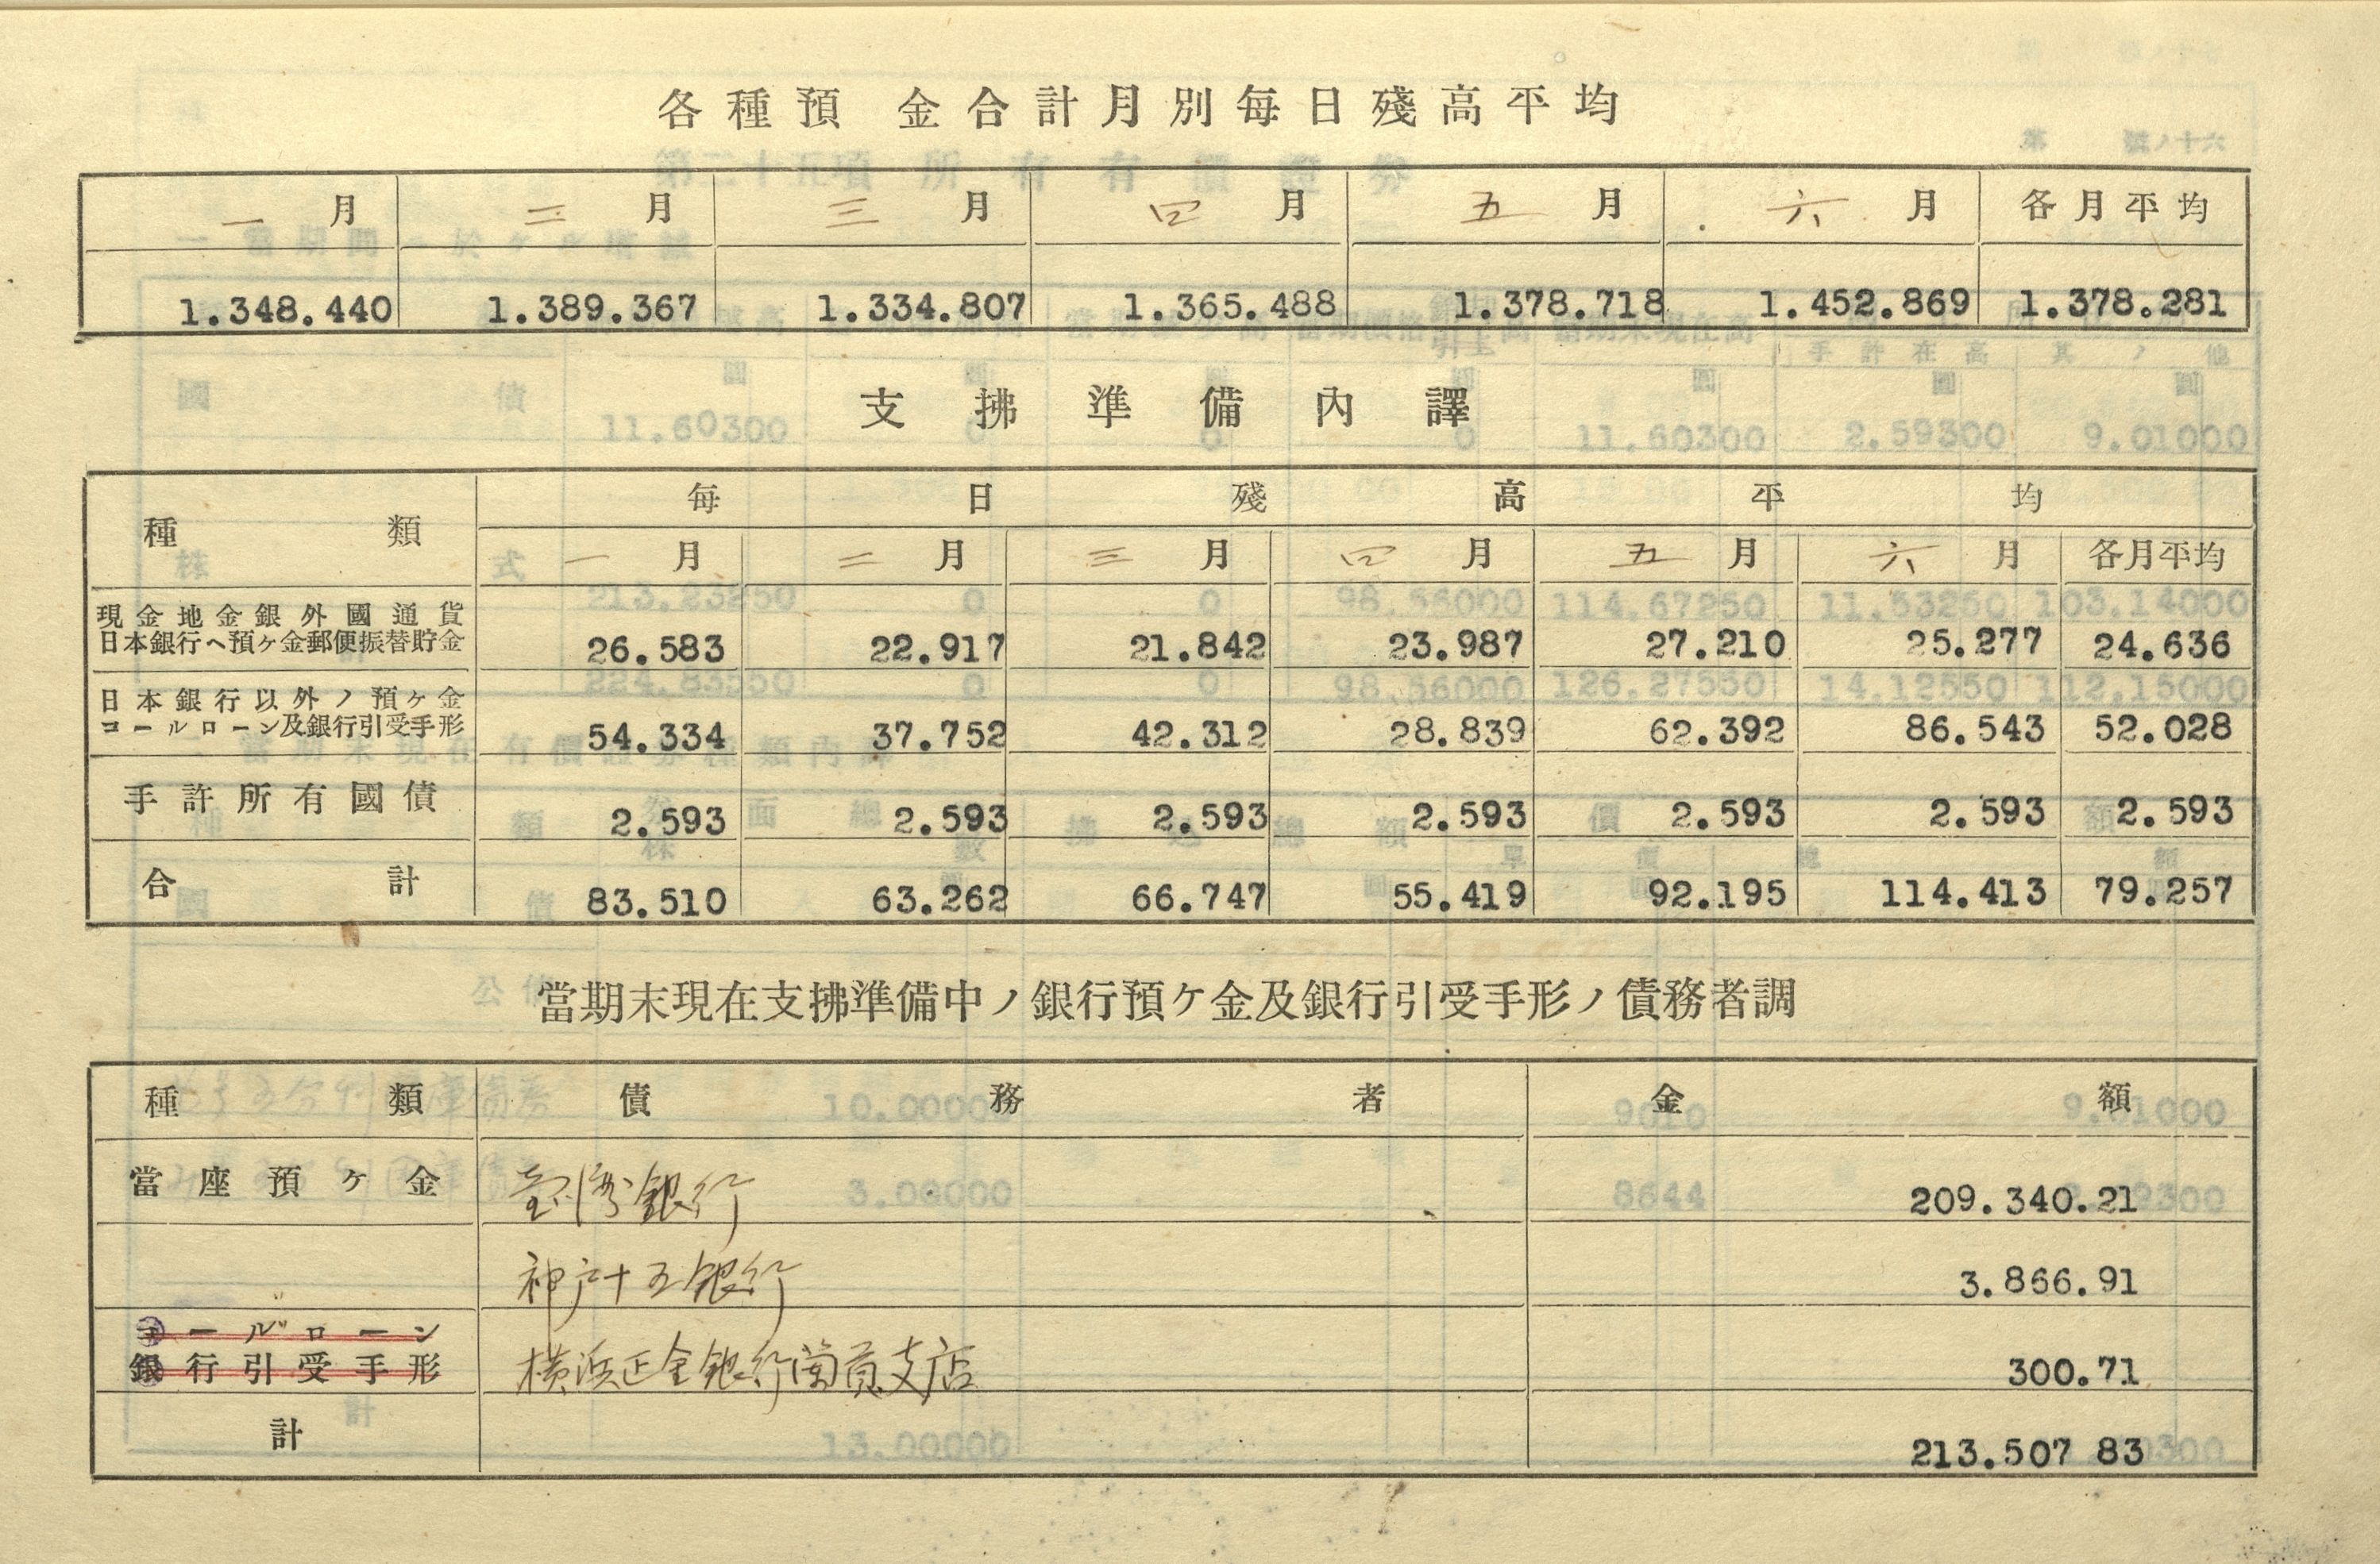 各種預金合計月別每日殘高平均
一月 二月 三月 四月 五月 六月 各月平均
1.348.440 1.389.367 1.334.807 1.365.488 1.378.718 1.452.869 1.378.281
支拂準備內譯
種類 每日殘高平均
一月 二月 三月 四月 五月 六月 各月平均
現金地金銀外國通貨
日本銀行ヘ預ヶ金郵便振替貯金 26.583 22.917 21.842 23.987 27.210 25.277 24.636
日本銀行以外ノ預ヶ金
コールローン及銀行引受手形 54.334 37.752 42.312 28.839 62.392 86.543 52.028
手許所有國債 2.593 2.593 2.593 2.593 2.593 2.593 2.593
合計 83.510 63.262 66.747 55.419 92.195 114.413 79.257
當期末現在支拂準備中ノ銀行預ケ金及銀行引受手形ノ債務者調
種類 債務者 金額
當座預ヶ金 臺灣銀行 209.340.21
〃 神戸十五銀行 3.866.91
コールローン
銀行引受手形 横浜正金銀行蘭貢支店 300.71
計 213.507 83